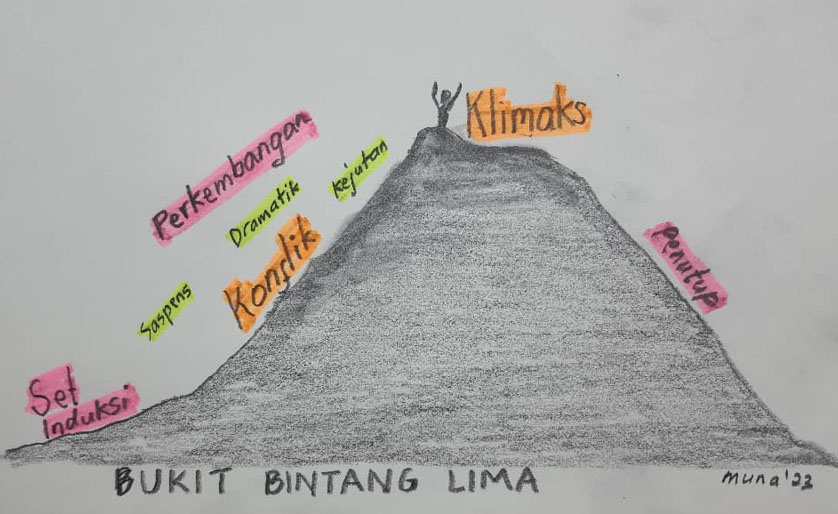 Klimaks
Perkembangan
Kejutan
Dramatik
Konflik
Penutup
Saspens
Set
Induksi
BUKIT BINTANG LIMA
Muna'22